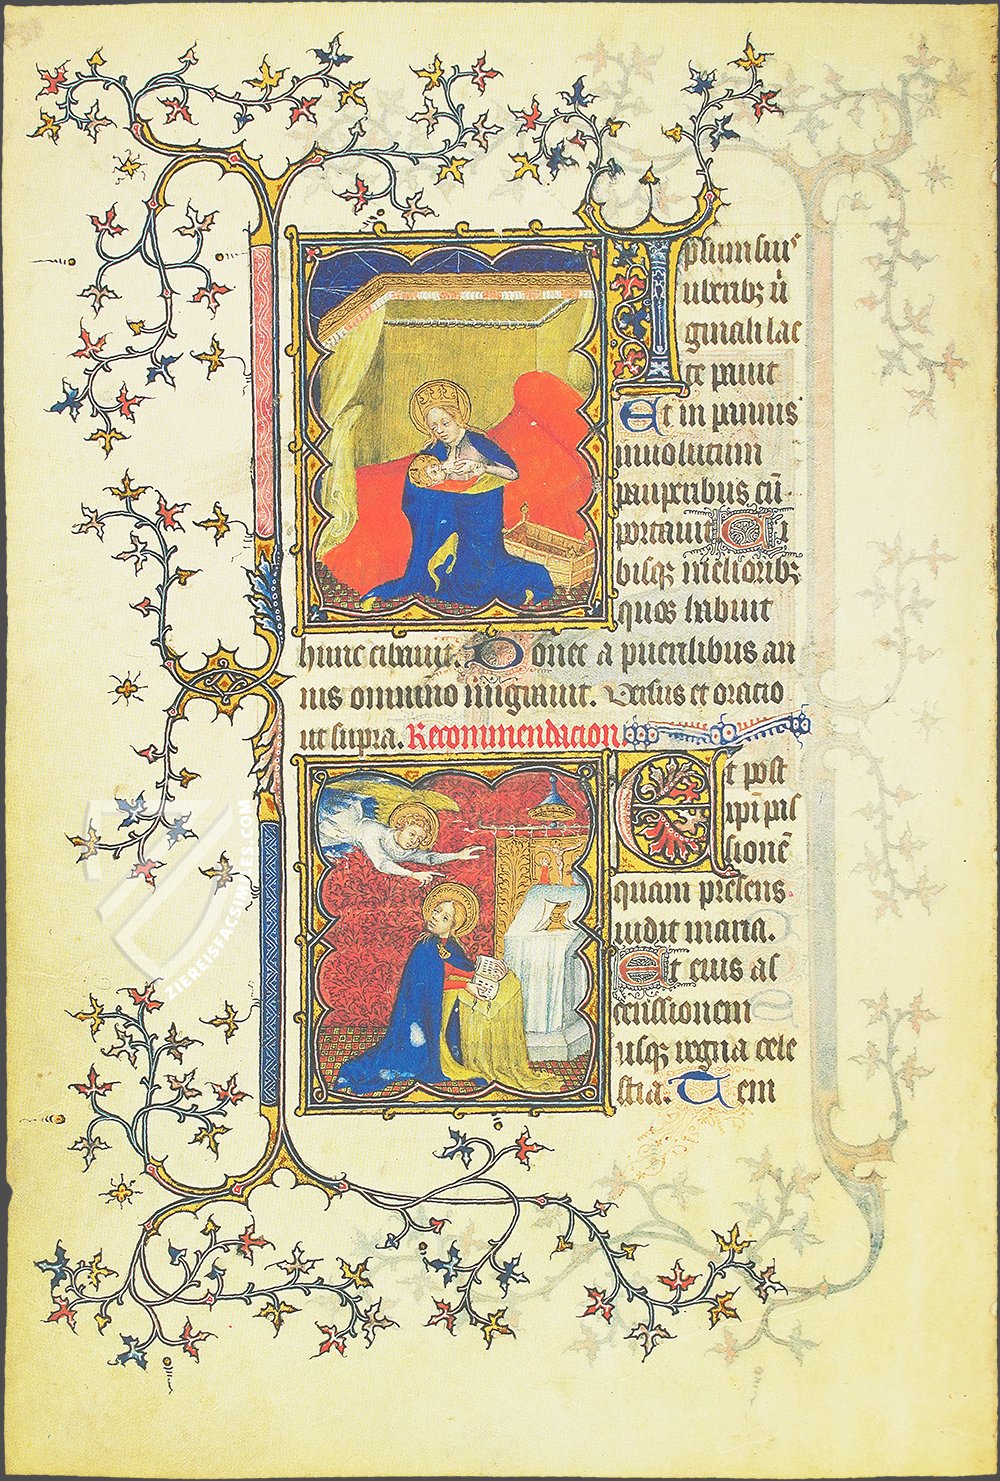 Ipsum suis
uberibz ui
ginali lac
te pauit
Et in pannis
inuolutum
pauperibus cū
portauit Ci
bisqz melioribz
quos habuit
hunc cibauit. Donec a puerilibus an
nis omnino migrauit. Versus et oratio
ut supra. Recommendacion.
Et post
xp̄i pas
sionē
quam presens
uidit maria.
Et eius as
censsionem
usqz regna cele
stia. Tem
ZIEREISFACSIMILES.COM